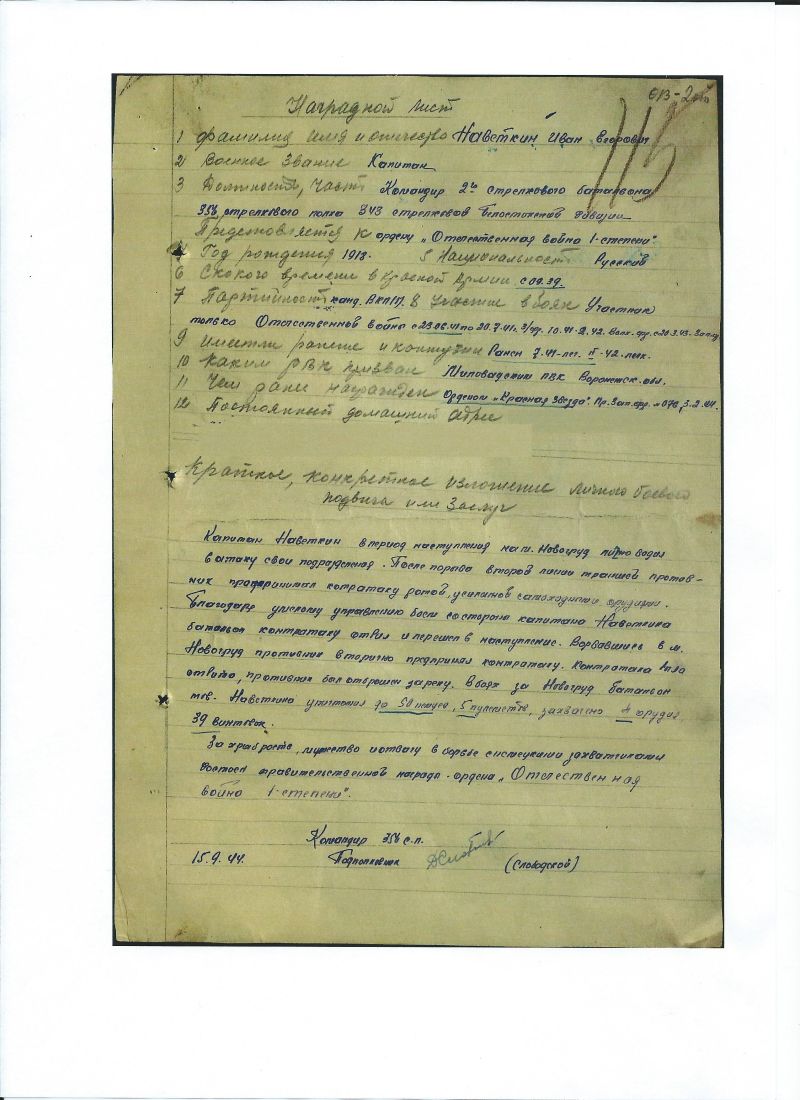 Наградной лист
115
1 Фамилия имя и отчество Наветкин Иван Егорович
2 Военное звание Капитан
3 Должность, часть Командир 2го стрелкового батальона
356 стрелкового полка 343 стрелковой Белостокской дивизии
Представляется к ордену „Отечественная война 1-степени“.
4 Год рождения 1913. 5 Национальность Русский
6 Скокого времени в Красной Армии с 09.39.
7 Партийность канд. ВКП/б/. 8 Участие в боях Участник
только Отечественной война с 23.06.41 по 20.7.41. З/фр. 10.41-2.42. Волх.фр. с 20.3.43. Зап.фр.
9 Имеет ли ранение и контузии Ранен 7.41-лег. II-42.-легк.
10 Каким РВК призван РВК Воронежск. обл.
11 Чем ране награжден Орденом „Красная Звезда“. Пр. Зап.фр. № 078, 3.2.44.
12 Постоянный домашний адрес
Краткое, конкретное изложение личного боевого
подвига или заслуг
Капитан Наветкин в период наступления на м. Новогруд лично водил
в атаку свои подразделения. После прорыва второй линии траншей против-
ник предпринимал котратаку ротой, усиленной самоходными орудиями.
Благодаря умелому управлению боем со стороны капитана Наветкина
батальон контратаку отбил и перешел в наступление. Ворвавшись в м.
Новогруд противник вторично предпринял контратаку. Контратака была
отбита, противник был отброшен за реку. В боях за Новогруд батальон
тов. Наветкина уничтожил до 50 немцев, 5 пулеметов, захвачено 4 орудия,
39 винтовок.
За храбрость, мужество и отвагу в борьбе с немецкими захватчиками
достоен правительственной награда - ордена „Отечественная
война 1-степени“.
Командир 356 с.п.
15.9.44. Подполковник (Слободской)